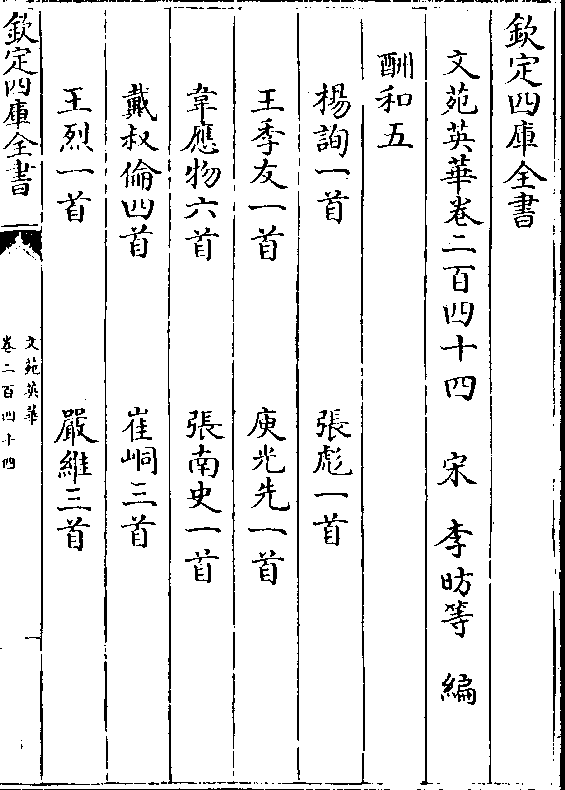 欽定四庫全書
文苑英華卷二百四十四　宋　李昉等　編
酬和五
楊詢一首　張彪一首
王季友一首　庾光先一首
韋應物六首　張南史一首
戴叔倫四首　崔峒三首
王烈一首　嚴維三首
欽定四庫全書
文苑英華
卷二百四十四
一